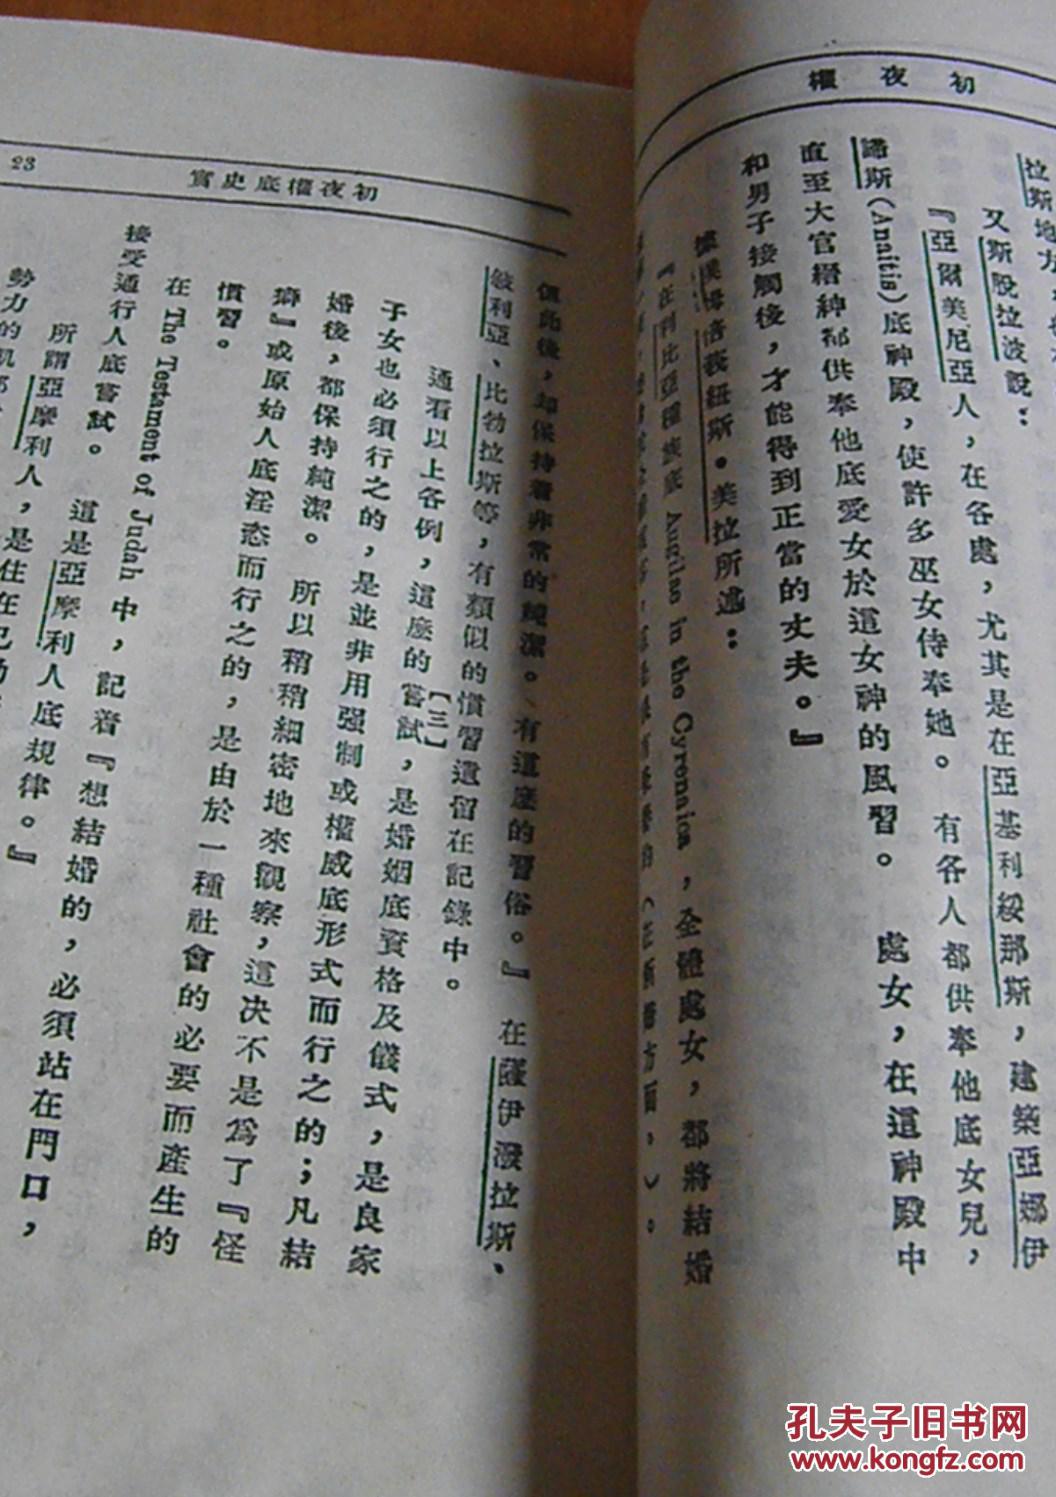 初夜權
拉斯地方
又斯脫拉波說：
『亞爾美尼亞人，在各處，尤其是在亞基利綏那斯，建築亞娜伊
諾斯(Anaitis)底神殿，使許多巫女侍奉她。有各人都供奉他底女兒，
直至大官縉紳都供奉他底愛女於這女神的風習。處女，在這神殿中
和男子接觸後，才能得到正當的丈夫。』
美拉所述：
『在利比亞種族底 Auzilae in the Cyrenaica，全體處女，都將結婚
初夜權底史實
23
但此後，却保持着非常的純潔。有這麼的習俗。』在薩伊潑拉斯、
敍利亞、比勃拉斯等，有類似的慣習遺留在記錄中。
【三】
通看以上各例，這麼的嘗試，是婚姻底資格及儀式，是良家
子女也必須行之的，是並非用强制或權威底形式而行之的；凡結
婚後，都保持純潔。所以稍稍細密地來觀察，這决不是爲了『怪
癖』或原始人底淫恣而行之的，是由於一種社會的必要而產生的
慣習。
在 The Testament of Judah 中，記着『想結婚的，必須站在門口，
接受通行人底嘗試。這是亞摩利人底規律。』
所謂亞摩利人，是住在
勢力的
孔夫子旧书网
www.kongfz.com